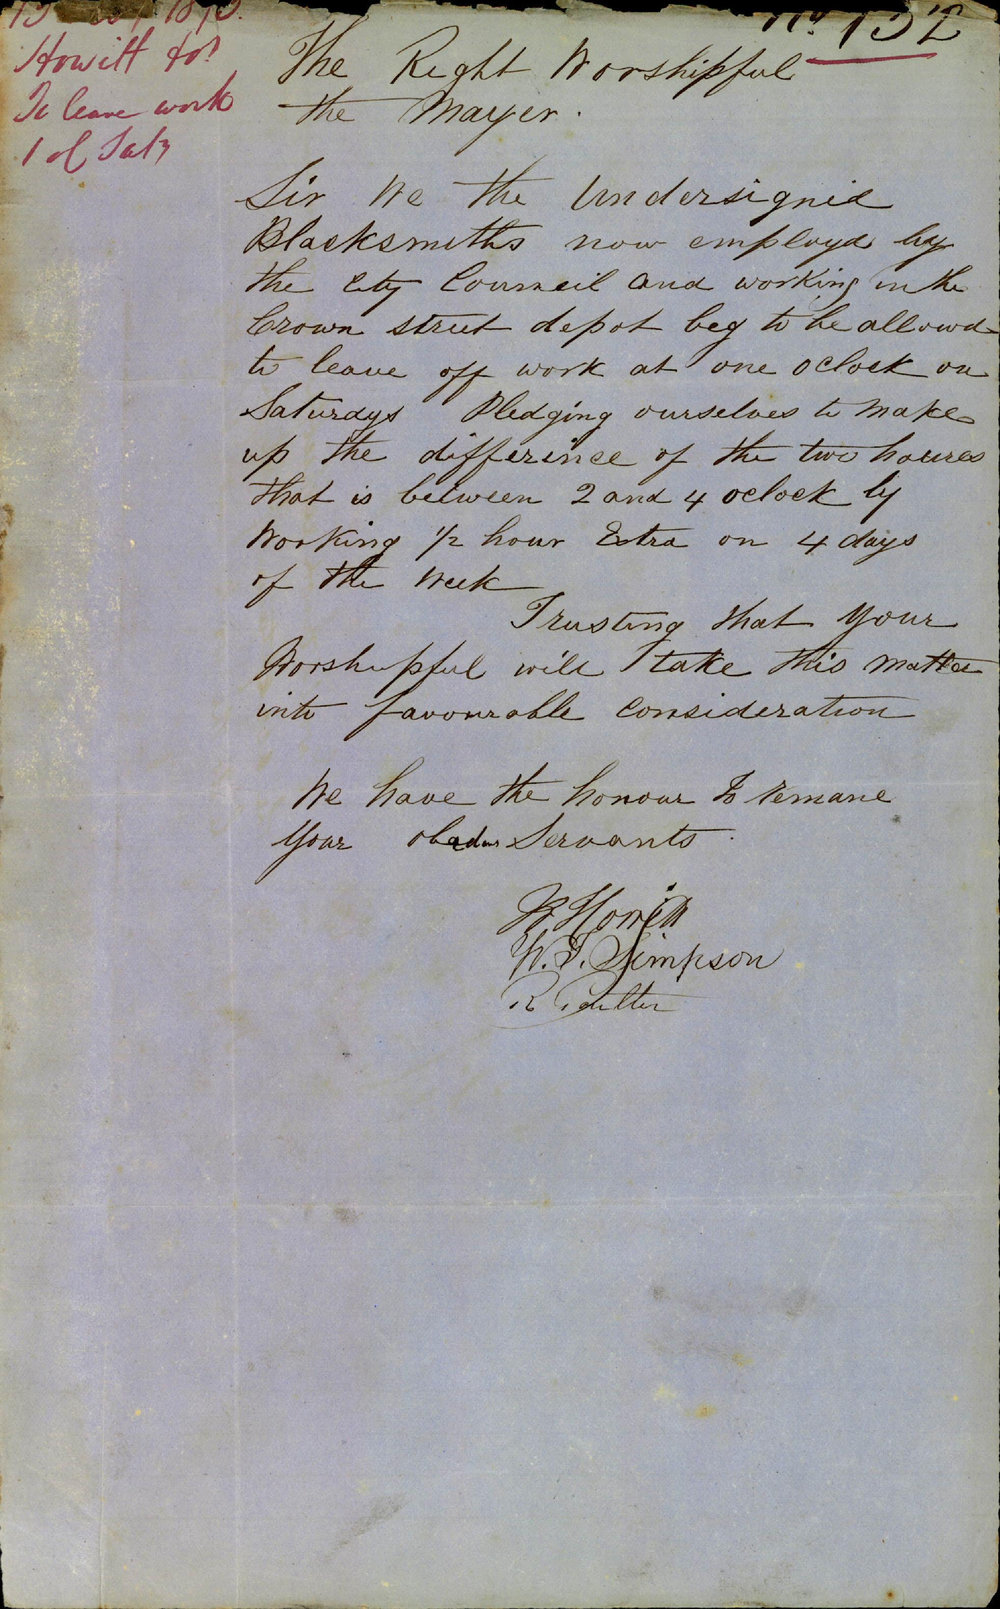 No 132
Howitt & ors
To leave work
1 ol Saty
The Right Worshipful
the Mayer.
Sir We the Undersignid
Blacksmiths now employd by
the City Counceil and working in the
Crown street depot beg to be allowd
to leave off work at one oclock on
Saturdys Pledging ourselves to make
up the differince of the two houres
that is between 2 and 4 oclock by
Working 1/2 hour Extra on 4 days
of the Week
Trusting that Your
Worshipful will take this matter
into favourable Consideration
We have the honour To remane
Your Servants.
Howitt
W. T. Simpson
R